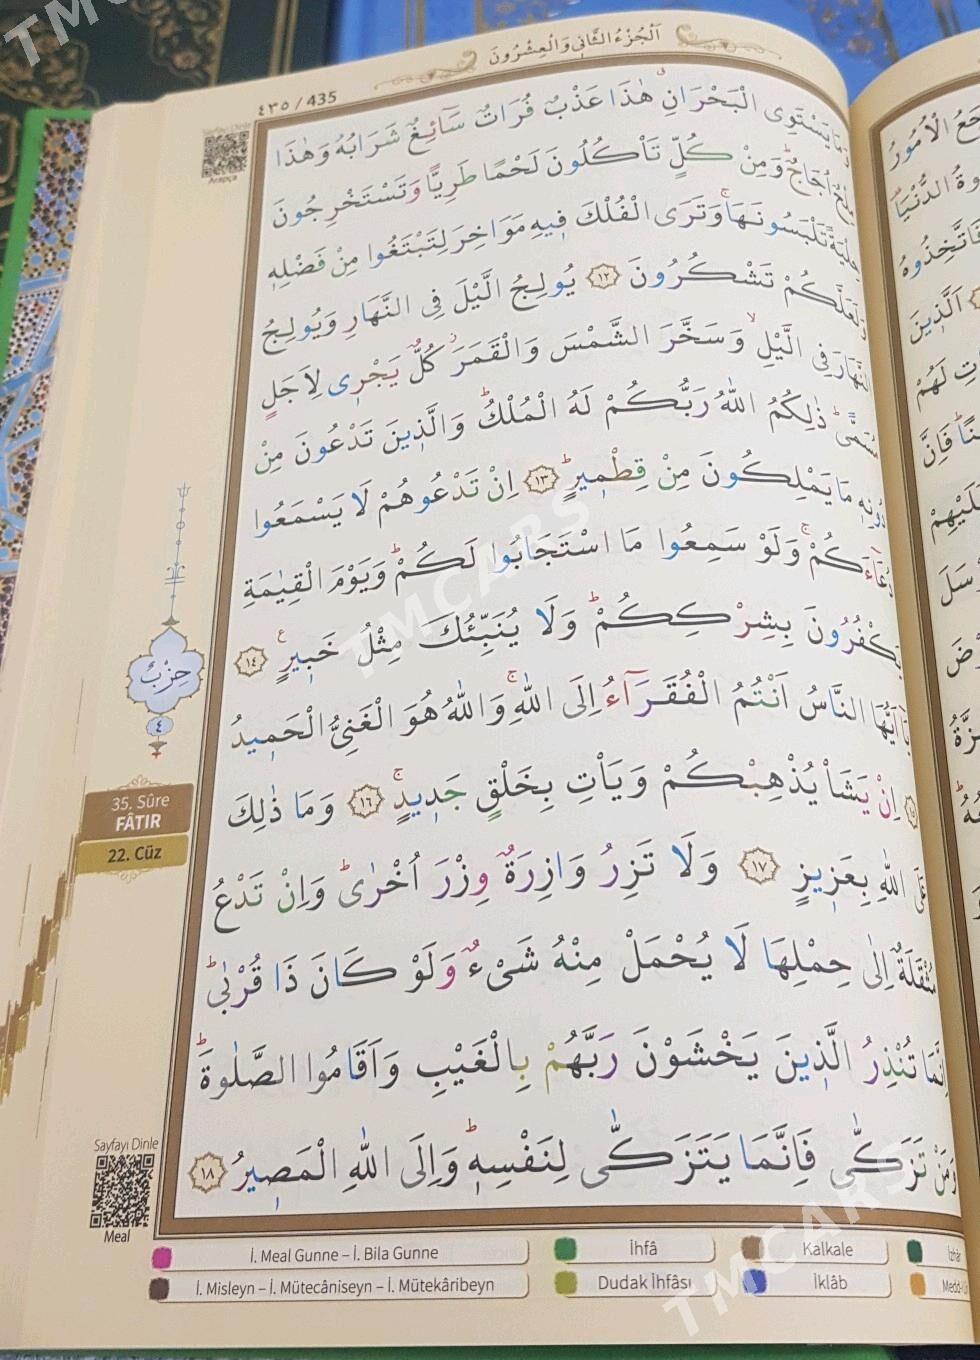 اَلْجُزْءُ الثَّانٖي وَالْعِشْرُونَ
٤٣٥ / 435
Sayfayı Dinle
Arapça
وَمَا يَسْتَوِى الْبَحْرَانِۗ هٰذَا عَذْبٌ فُرَاتٌ سَٓائِغٌ شَرَابُهُ وَهٰذَا
مِلْحٌ اُجَاجٌؕ وَمِنْ كُلٍّ تَأْكُلُونَ لَحْمًا طَرِيًّا وَتَسْتَخْرِجُونَ
حِلْيَةً تَلْبَسُونَهَاۚ وَتَرَى الْفُلْكَ فٖيهِ مَوَاخِرَ لِتَبْتَغُوا مِنْ فَضْلِهٖ
وَلَعَلَّكُمْ تَشْكُرُونَ ١٢ يُولِجُ الَّيْلَ فِى النَّهَارِ وَيُولِجُ
النَّهَارَ فِى الَّيْلِۙ وَسَخَّرَ الشَّمْسَ وَالْقَمَرَؗ كُلٌّ يَجْرٖى لِاَجَلٍ
مُسَمًّىؕ ذٰلِكُمُ اللّٰهُ رَبُّكُمْ لَهُ الْمُلْكُؕ وَالَّذٖينَ تَدْعُونَ مِنْ
دُونِهٖ مَا يَمْلِكُونَ مِنْ قِطْمٖيرٍؕ ١٣ اِنْ تَدْعُوهُمْ لَا يَسْمَعُوا
دُعَٓاءَكُمْۚ وَلَوْ سَمِعُوا مَا اسْتَجَابُوا لَكُمْؕ وَيَوْمَ الْقِيٰمَةِ
يَكْفُرُونَ بِشِرْكِكُمْؕ وَلَا يُنَبِّئُكَ مِثْلُ خَبٖيرٍ ع ١٤
يَٓا اَيُّهَا النَّاسُ اَنْتُمُ الْفُقَرَٓاءُ اِلَى اللّٰهِۚ وَاللّٰهُ هُوَ الْغَنِىُّ الْحَمٖيدُ
١٥ اِنْ يَشَاْ يُذْهِبْكُمْ وَيَأْتِ بِخَلْقٍ جَدٖيدٍۚ ١٦ وَمَا ذٰلِكَ
عَلَى اللّٰهِ بِعَزٖيزٍ ١٧ وَلَا تَزِرُ وَازِرَةٌ وِزْرَ اُخْرٰىؕ وَاِنْ تَدْعُ
مُثْقَلَةٌ اِلٰى حِمْلِهَا لَا يُحْمَلْ مِنْهُ شَىْءٌ وَلَوْ كَانَ ذَا قُرْبٰىؕ
اِنَّمَا تُنْذِرُ الَّذٖينَ يَخْشَوْنَ رَبَّهُمْ بِالْغَيْبِ وَاَقَامُوا الصَّلٰوةَؕ
وَمَنْ تَزَكّٰى فَاِنَّمَا يَتَزَكّٰى لِنَفْسِهٖؕ وَاِلَى اللّٰهِ الْمَصٖيرُ ١٨
حِزْبٌ
٤
35. Sûre
FÂTIR
22. Cüz
Sayfayı Dinle
Meal
İ. Meal Gunne – İ. Bila Gunne
İhfâ
Kalkale
İzhâr
İ. Misleyn – İ. Mütecâniseyn – İ. Mütekâribeyn
Dudak İhfâsı
İklâb
جَعُ الْاُمُورُ
وةُ الدُّنْيَا
فَاتَّخِذُوهُ
اَلَّذٖينَ
لَهُمْ
فَاِنَّ
عَلَيْهِمْ
TMCARS
TMCARS
TMCARS